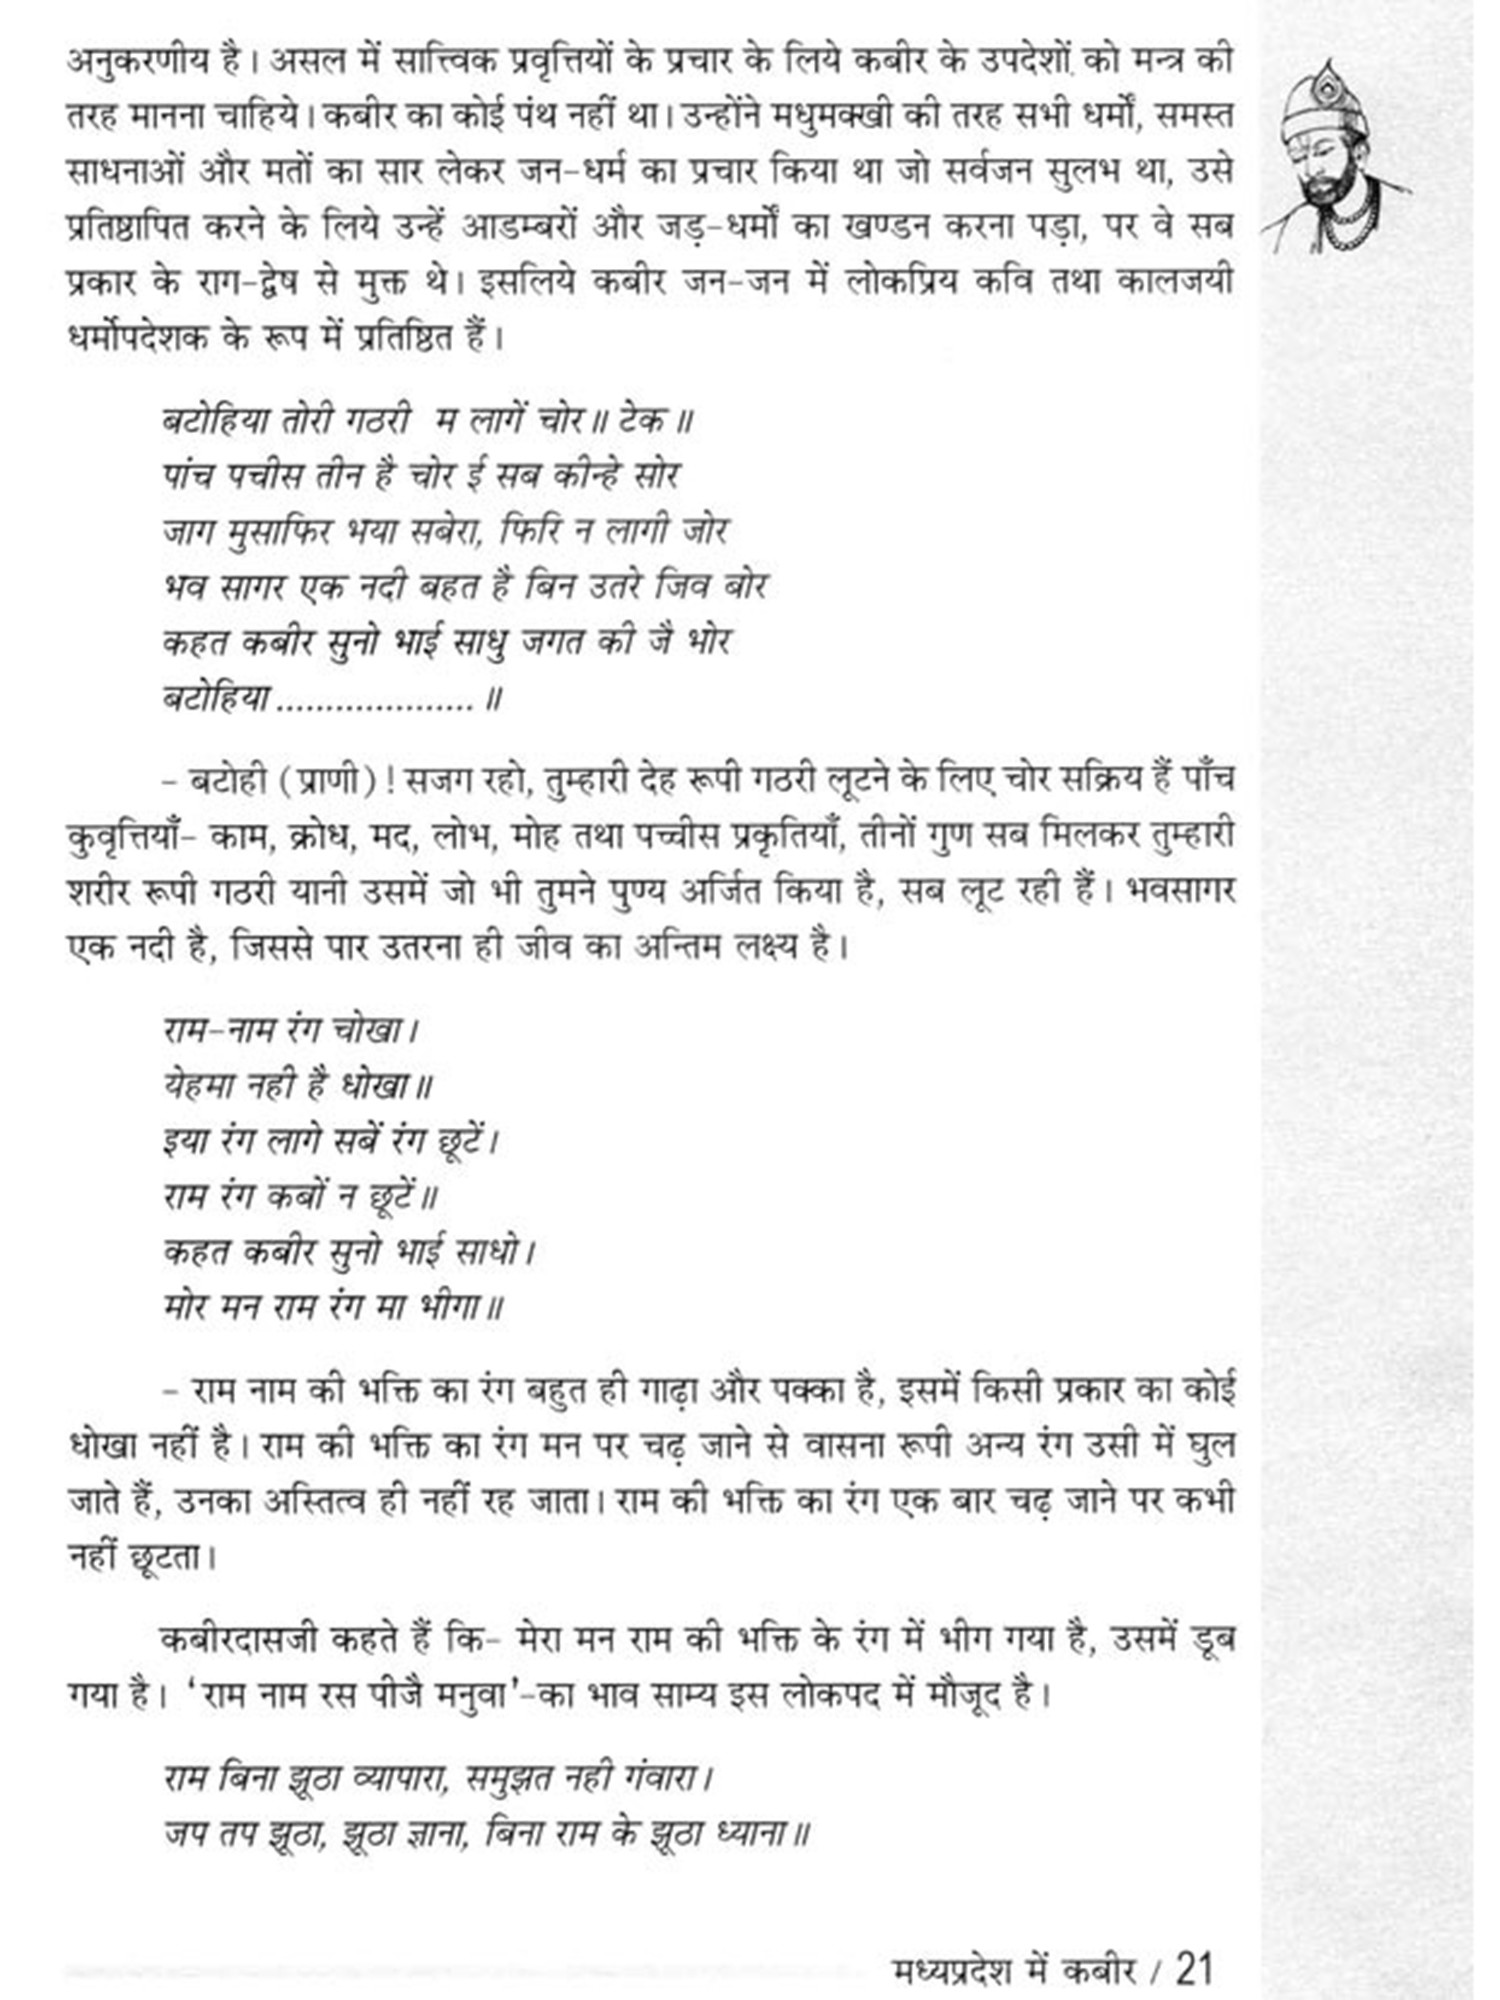 अनुकरणीय है। असल में सात्त्विक प्रवृत्तियों के प्रचार के लिये कबीर के उपदेशों को मन्त्र की
तरह मानना चाहिये। कबीर का कोई पंथ नहीं था। उन्होंने मधुमक्खी की तरह सभी धर्मों, समस्त
साधनाओं और मतों का सार लेकर जन-धर्म का प्रचार किया था जो सर्वजन सुलभ था, उसे
प्रतिष्ठापित करने के लिये उन्हें आडम्बरों और जड़-धर्मों का खण्डन करना पड़ा, पर वे सब
प्रकार के राग-द्वेष से मुक्त थे। इसलिये कबीर जन-जन में लोकप्रिय कवि तथा कालजयी
धर्मोपदेशक के रूप में प्रतिष्ठित हैं।
बटोहिया तोरी गठरी म लागें चोर॥ टेक॥
पांच पचीस तीन है चोर ई सब कीन्हे सोर
जाग मुसाफिर भया सबेरा, फिरि न लागी जोर
भव सागर एक नदी बहत है बिन उतरे जिव बोर
कहत कबीर सुनो भाई साधु जगत की जै भोर
बटोहिया ................... ॥
- बटोही (प्राणी)! सजग रहो, तुम्हारी देह रूपी गठरी लूटने के लिए चोर सक्रिय हैं पाँच
कुवृत्तियाँ- काम, क्रोध, मद, लोभ, मोह तथा पच्चीस प्रकृतियाँ, तीनों गुण सब मिलकर तुम्हारी
शरीर रूपी गठरी यानी उसमें जो भी तुमने पुण्य अर्जित किया है, सब लूट रही हैं। भवसागर
एक नदी है, जिससे पार उतरना ही जीव का अन्तिम लक्ष्य है।
राम-नाम रंग चोखा।
येहमा नही है धोखा॥
इया रंग लागे सबें रंग छूटें।
राम रंग कबों न छूटें॥
कहत कबीर सुनो भाई साधो।
मोर मन राम रंग मा भीगा॥
- राम नाम की भक्ति का रंग बहुत ही गाढ़ा और पक्का है, इसमें किसी प्रकार का कोई
धोखा नहीं है। राम की भक्ति का रंग मन पर चढ़ जाने से वासना रूपी अन्य रंग उसी में घुल
जाते हैं, उनका अस्तित्व ही नहीं रह जाता। राम की भक्ति का रंग एक बार चढ़ जाने पर कभी
नहीं छूटता।
कबीरदासजी कहते हैं कि- मेरा मन राम की भक्ति के रंग में भीग गया है, उसमें डूब
गया है। ‘राम नाम रस पीजै मनुवा’-का भाव साम्य इस लोकपद में मौजूद है।
राम बिना झूठा व्यापारा, समुझत नही गंवारा।
जप तप झूठा, झूठा ज्ञाना, बिना राम के झूठा ध्याना॥
मध्यप्रदेश में कबीर / 21